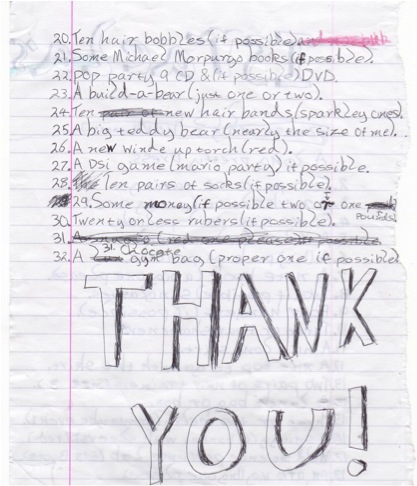 20. Ten hair bobbles (if possible)
21. Some Michael Morpurgo books (if possible).
22. Pop party 9 CD & (if possible) DVD.
23. A build-a-bear (just one or two).
24. Ten pair of new hair bands (sparkley ones).
25. A big teddy bear (nearly the size of me).
26. A new winde up torch (red).
27. A Dsi game (mario party) if possible.
28. Ten pairs of socks (if possible).
29. Some money (if possible two or one pounds
30. Twenty or less rubers (if possible).
31. (red one please if possible
31. chocate
32. A gym bag (proper one if possible
THANK
YOU!